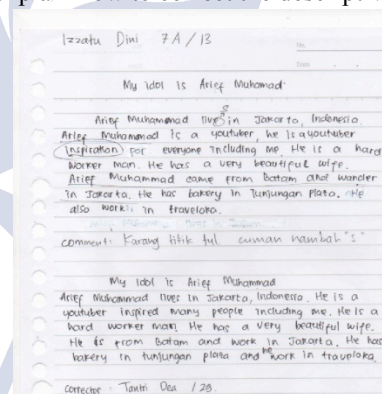 Izzatu Dini 7A / 13
My idol is Arief Muhamad
Arief Muhammad lives in Jakarta, Indonesia.
Arief Muhammad is a youtuber, he is a youtuber
inspiration for everyone including me. He is a hard
worker man. He has a very beautiful wife.
Arief Muhammad came from Batam and wander
in Jakarta. He has bakery in Tunjungan Plaza. He
also work in traveloka.
comment: Karang titik tul cuman nambah "s"
My idol is Arief Muhammad
Arief Muhammad lives in Jakarta, Indonesia. He is a
youtuber inspired many people including me. He is a
hard worker man. He has a very beautiful wife.
He is from Batam and work in Jakarta. He has
bakery in tunjungan plaza and he work in traveloka.
corrector : Tantri Dea / 28.